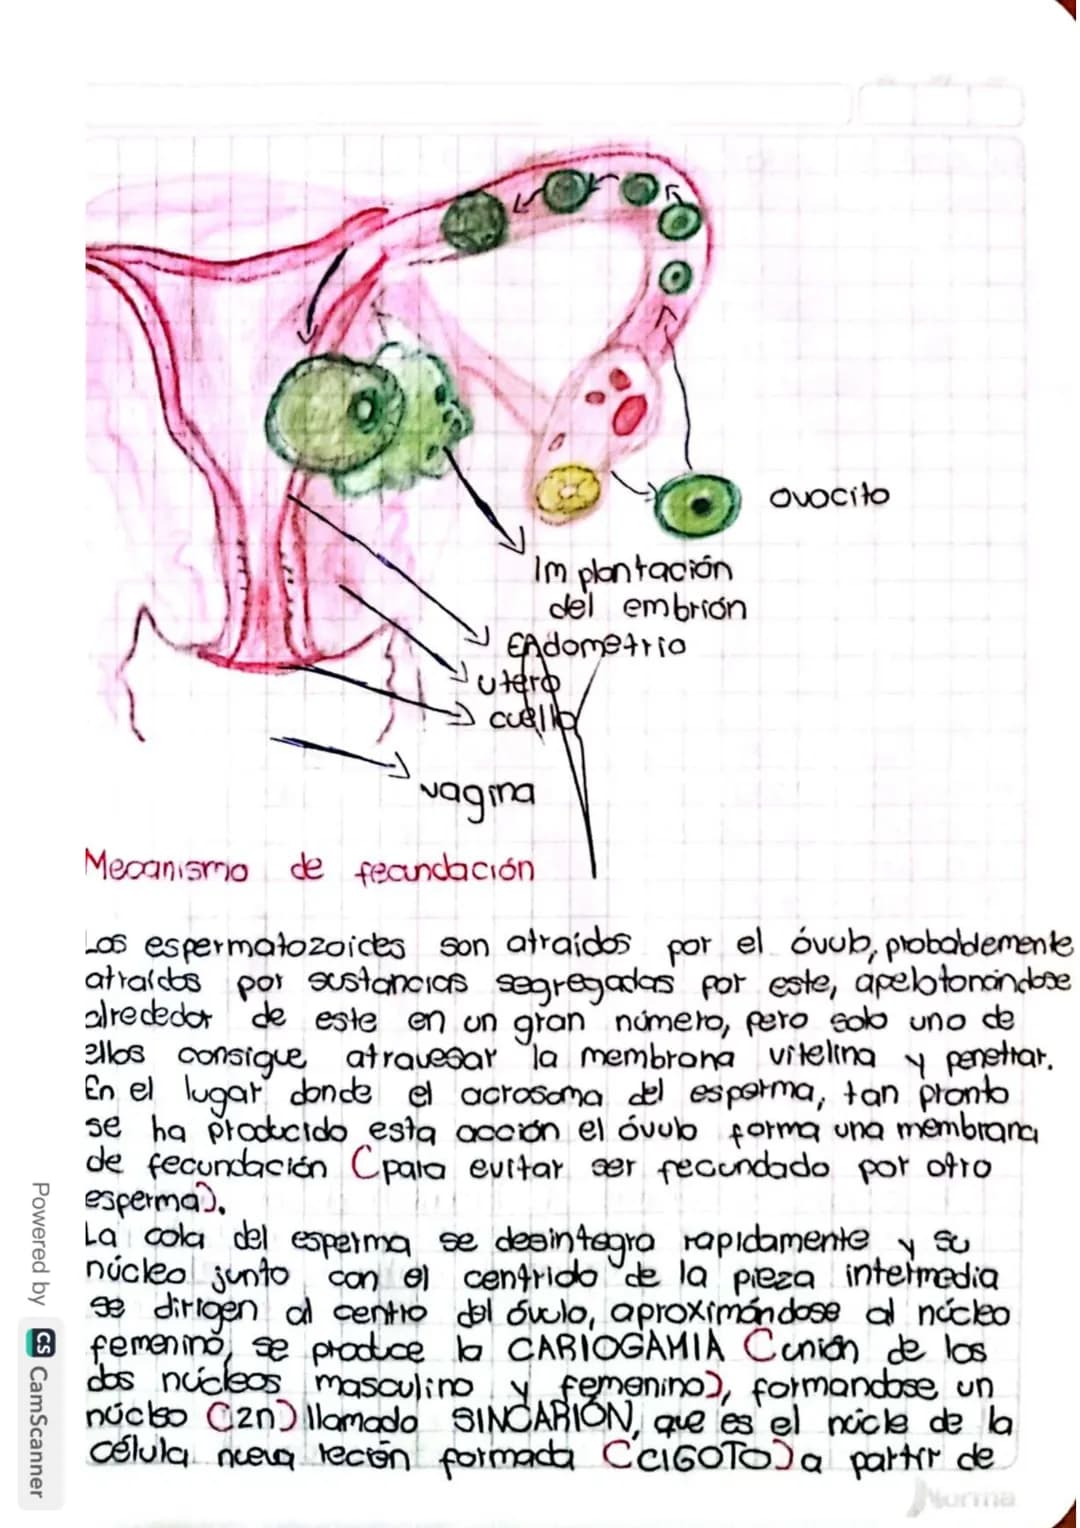 ovocito
Implantación
del embrión
Endometrio
utero
cuello
vagina
Mecanismo de fecundación
Los espermatozoides son atraidos por el óvulo, probablemente
atraídos por sustancias segregadas por este, apelotonándose
alrededor de este en un gran número, pero solo uno de
ellos consigue atravesar la membrana vitelina y penetrar.
En el lugar donde el acrosoma del esperma, tan pronto
se ha producido esta acción el óvulo forma una membrana
de fecundación (para evitar ser fecundado por otro
esperma).
La cola del esperma se desintegra rapidamente y su
núcleo junto con el centriolo de la pieza intermedia
se dirigen al centro del óvulo, aproximándose al núcleo
femenino, se produce la CARIOGAMIA (unión de los
dos núcleos masculino y femenino), formandose un
núcleo (2n) llamado SINCARIÓN, que es el núcle de la
célula nueva recién formada (CIGOTO) a partir de
Norma
Powered by CS CamScanner